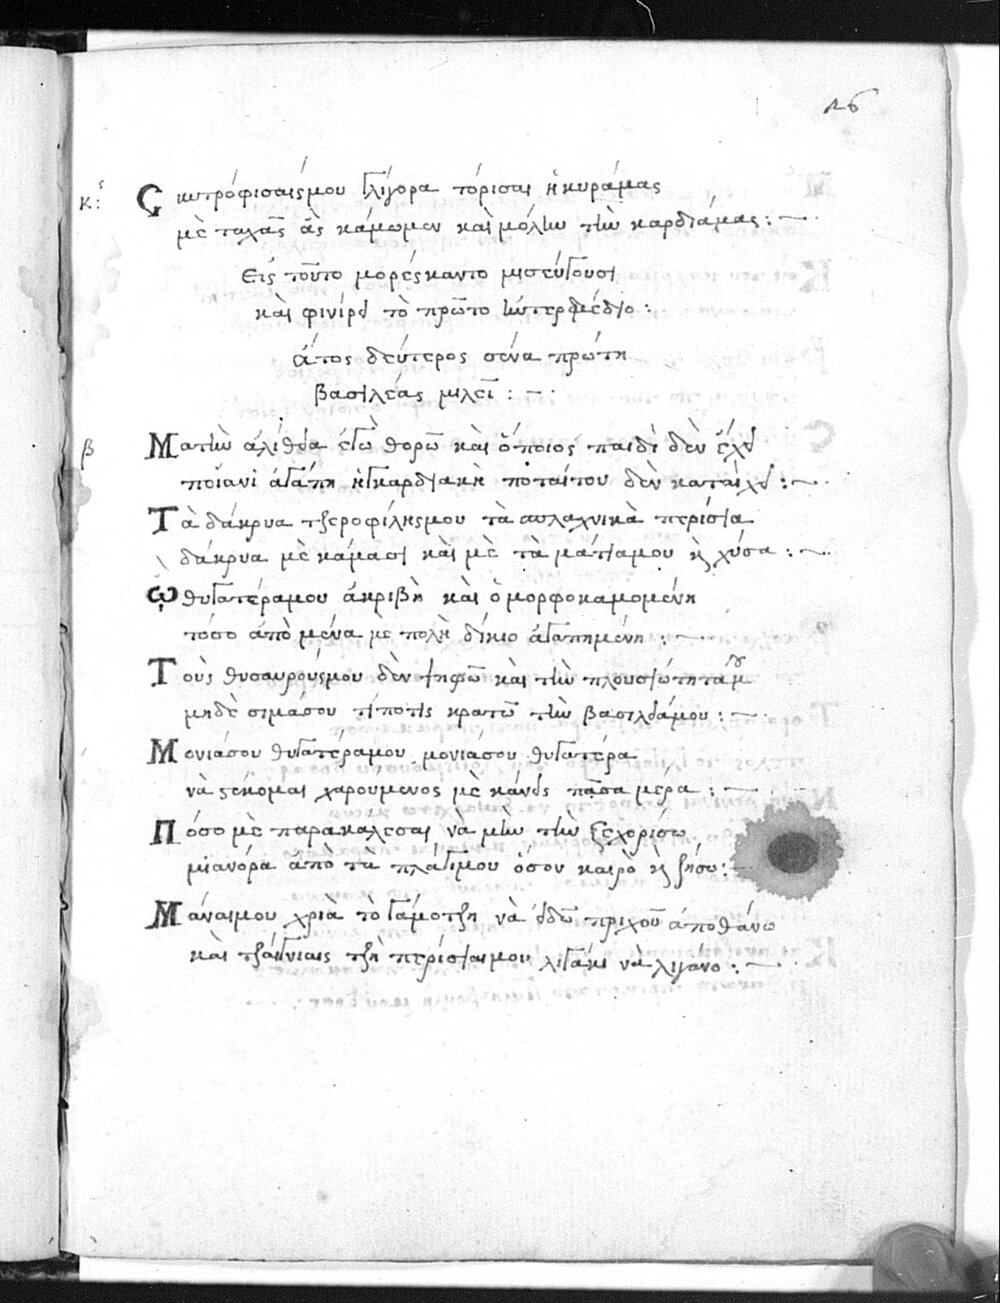 26
κς: Σ ιντρόφισαιςμου γλίγορα τόρισαι ἡ κυράμας
μὲ ταχᾶς ἂς κάμωμεν καὶ μόλιν τὴν καρδιάμας :—
Εἰς τοῦτο μορέςκαντο μισεύγουσι
καὶ φινίρει τὸ πρῶτο ἰντερμέδιο :
ἄτος δεύτερος σένα πρώτη
βασιλέας μιλεῖ : —
β Ματὴν ἀλίθεια ἐγὼ θορῶ καὶ ὅποιος παιδὶ δὲν ἔχει
ποίανι ἀγάπη ἡ γκαρδιακὴ ποταίτου δὲν κατέχει :—
Τὰ δάκρυα τξεροφίλησμου τὰ σπλαχνικὰ περίσια
δάκρυα μὲ κάμασι καὶ μὲ τὰ μάτιαμου κ̀ χύσα :—
ὦ θυγατέραμου ἀκριβὴ καὶ ὀμορφοκαμομένη
τόσο ἀπὸ μένα μὲ πολὴ δίκιο ἀγαπημένη :—
Τοὺς θυσαυρούςμου δὲν ψηφῶ καὶ τὴν πλουσιώτητάμου
μηδὲ σιμάσου τίποτις κρατῶ τὴν βασιλειάμου :—
Μονιάσου θυγατέραμου μονιάσου θυγατέρα
νὰ ςέκομαι χαρούμενος μὲ κάνεις πᾶσα μέρα :—
Πόσο μὲ παρακάλεσαι νὰ μὴν τὴν ξεχορίσω
μιανόρα ἀπὸ τὰ πλάγιμου ὅσον καιρὸ κ̀ ζήσω :—
Μάναιμου χριὰ τὸ γάμοτξη νὰ ἰδῶ πριχοῦ ἀποθάνω
καὶ τξαίγνιαις τξὴ περίσιαιμου λιγάκι νὰ λιγάνο :—